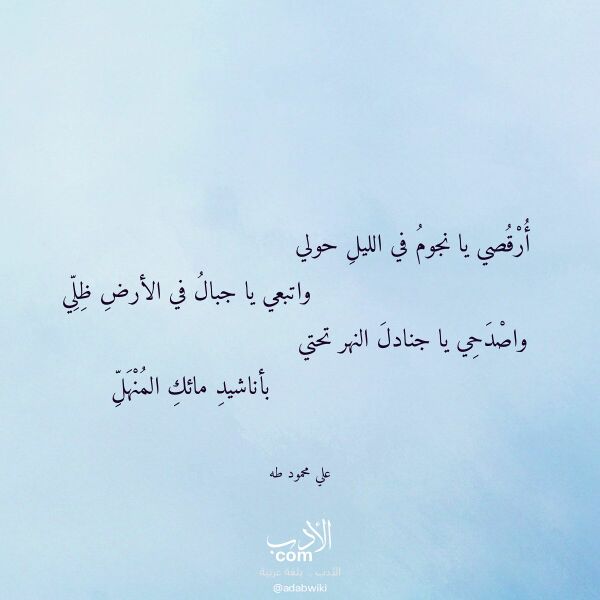 أُرْقُصي يا نجومُ في الليلِ حولي
واتبعي يا جبالُ في الأرضِ ظِلِّي
واصْدَحِي يا جنادلَ النهر تحتي
بأناشيدِ مائكِ المُنْهَلِّ
علي محمود طه
الأدب
com
الأدب .. بلغة عربية
@adabwiki